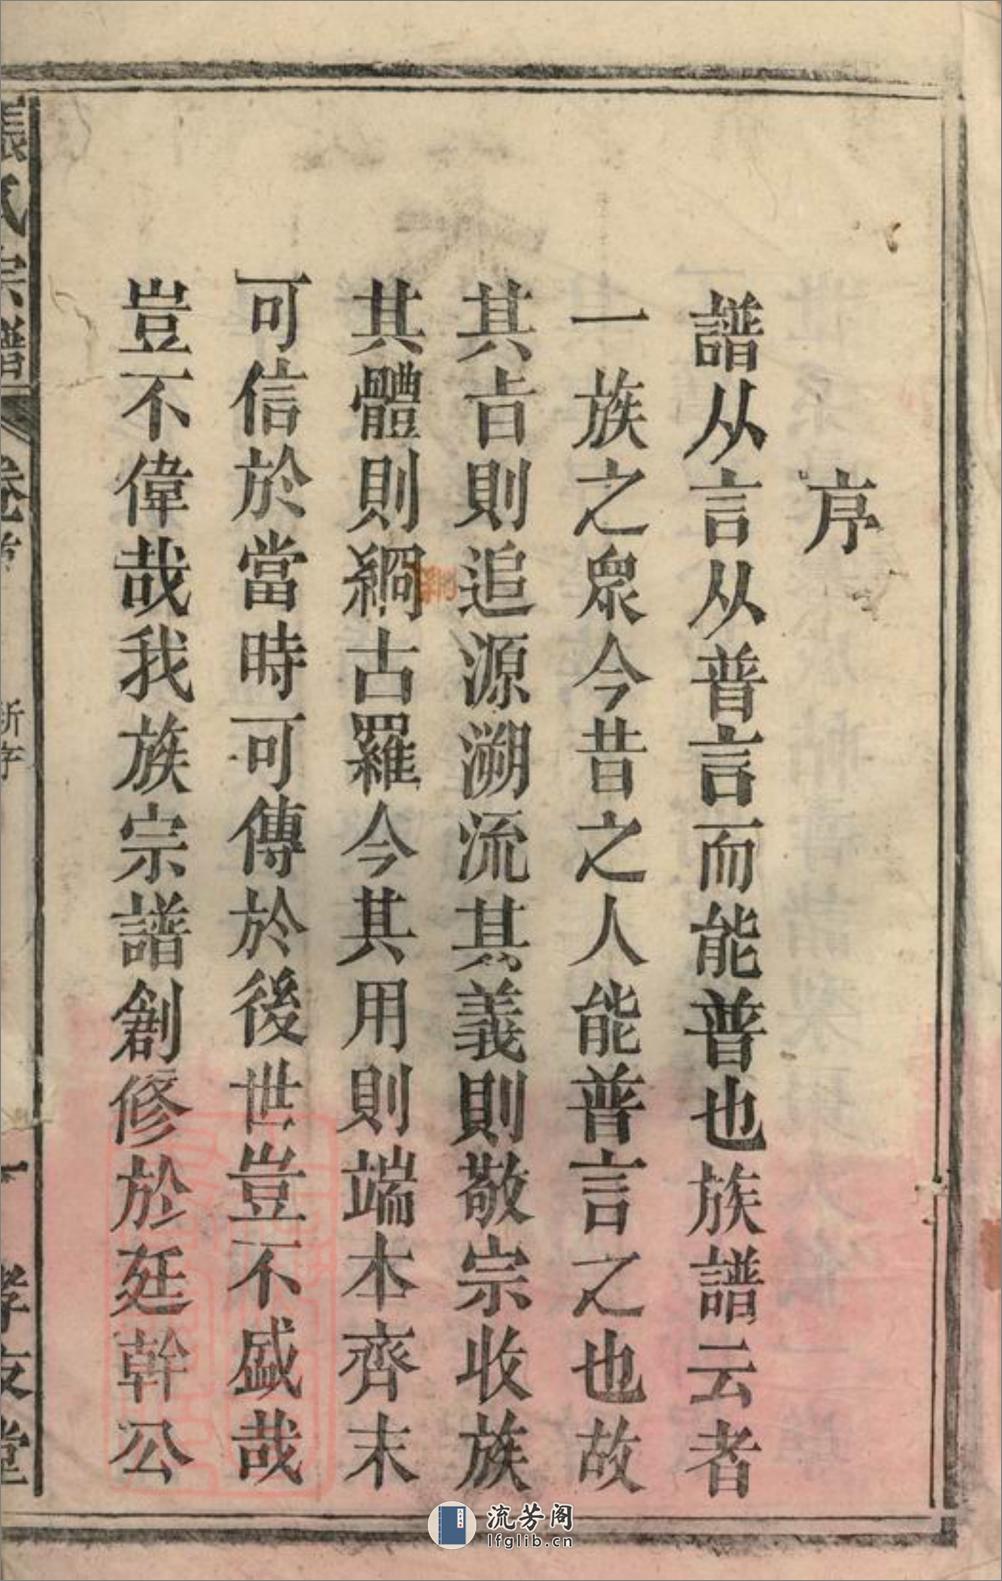 序
譜从言从普言而能普也族譜云者
一族之眾今昔之人能普言之也故
其㫖則追源溯流其義則敬宗收族
其體則綱古羅今其用則端本齊末
可信於當時可傳於後世豈不盛哉
豈不偉哉我族宗譜創修於廷幹公
張氏宗譜 卷首 新序 一 孝友堂
流芳阁
lfglib.cn